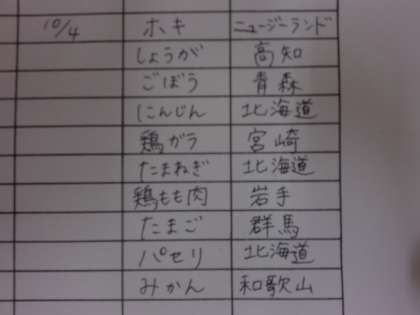 10/4 ホキ ニュージーランド
しょうが 高知
ごぼう 青森
にんじん 北海道
鶏ガラ 宮崎
たまねぎ 北海道
鶏もも肉 岩手
たまご 群馬
パセリ 北海道
みかん 和歌山